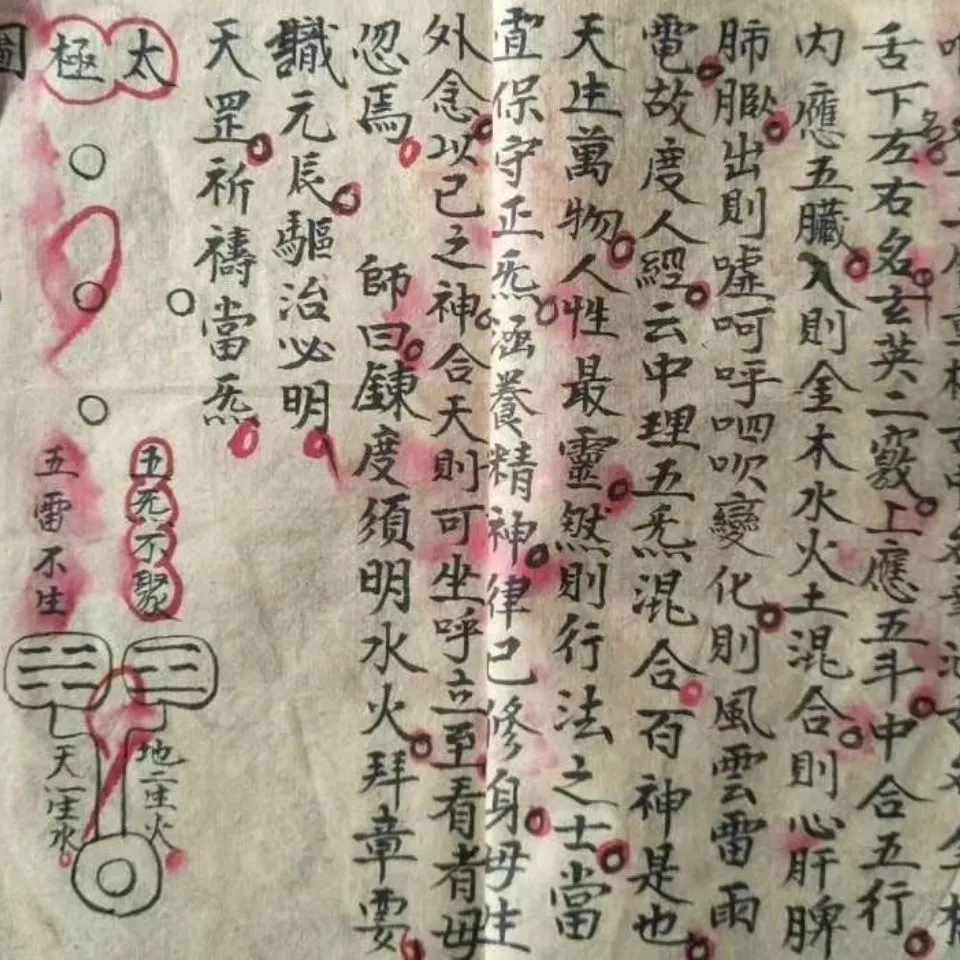 舌下左右名玄英二竅上應五斗中合五行
内應五臟入則金木水火土混合則心肝脾
肺出則噓呵呼呬吹變化則風雲雷雨
電故度人經云中理五炁混合百神是也
天生萬物人性最靈然則行法之士當
宜保守正炁涵養精神律己修身毋生
外念以己之神合天則可坐呼立至看者毋
忽焉 師曰鍊度須明水火拜章要
識元辰驅治必明
天罡祈禱當炁
太極圖
五炁不聚
五雷不生
地二生火
天一生水